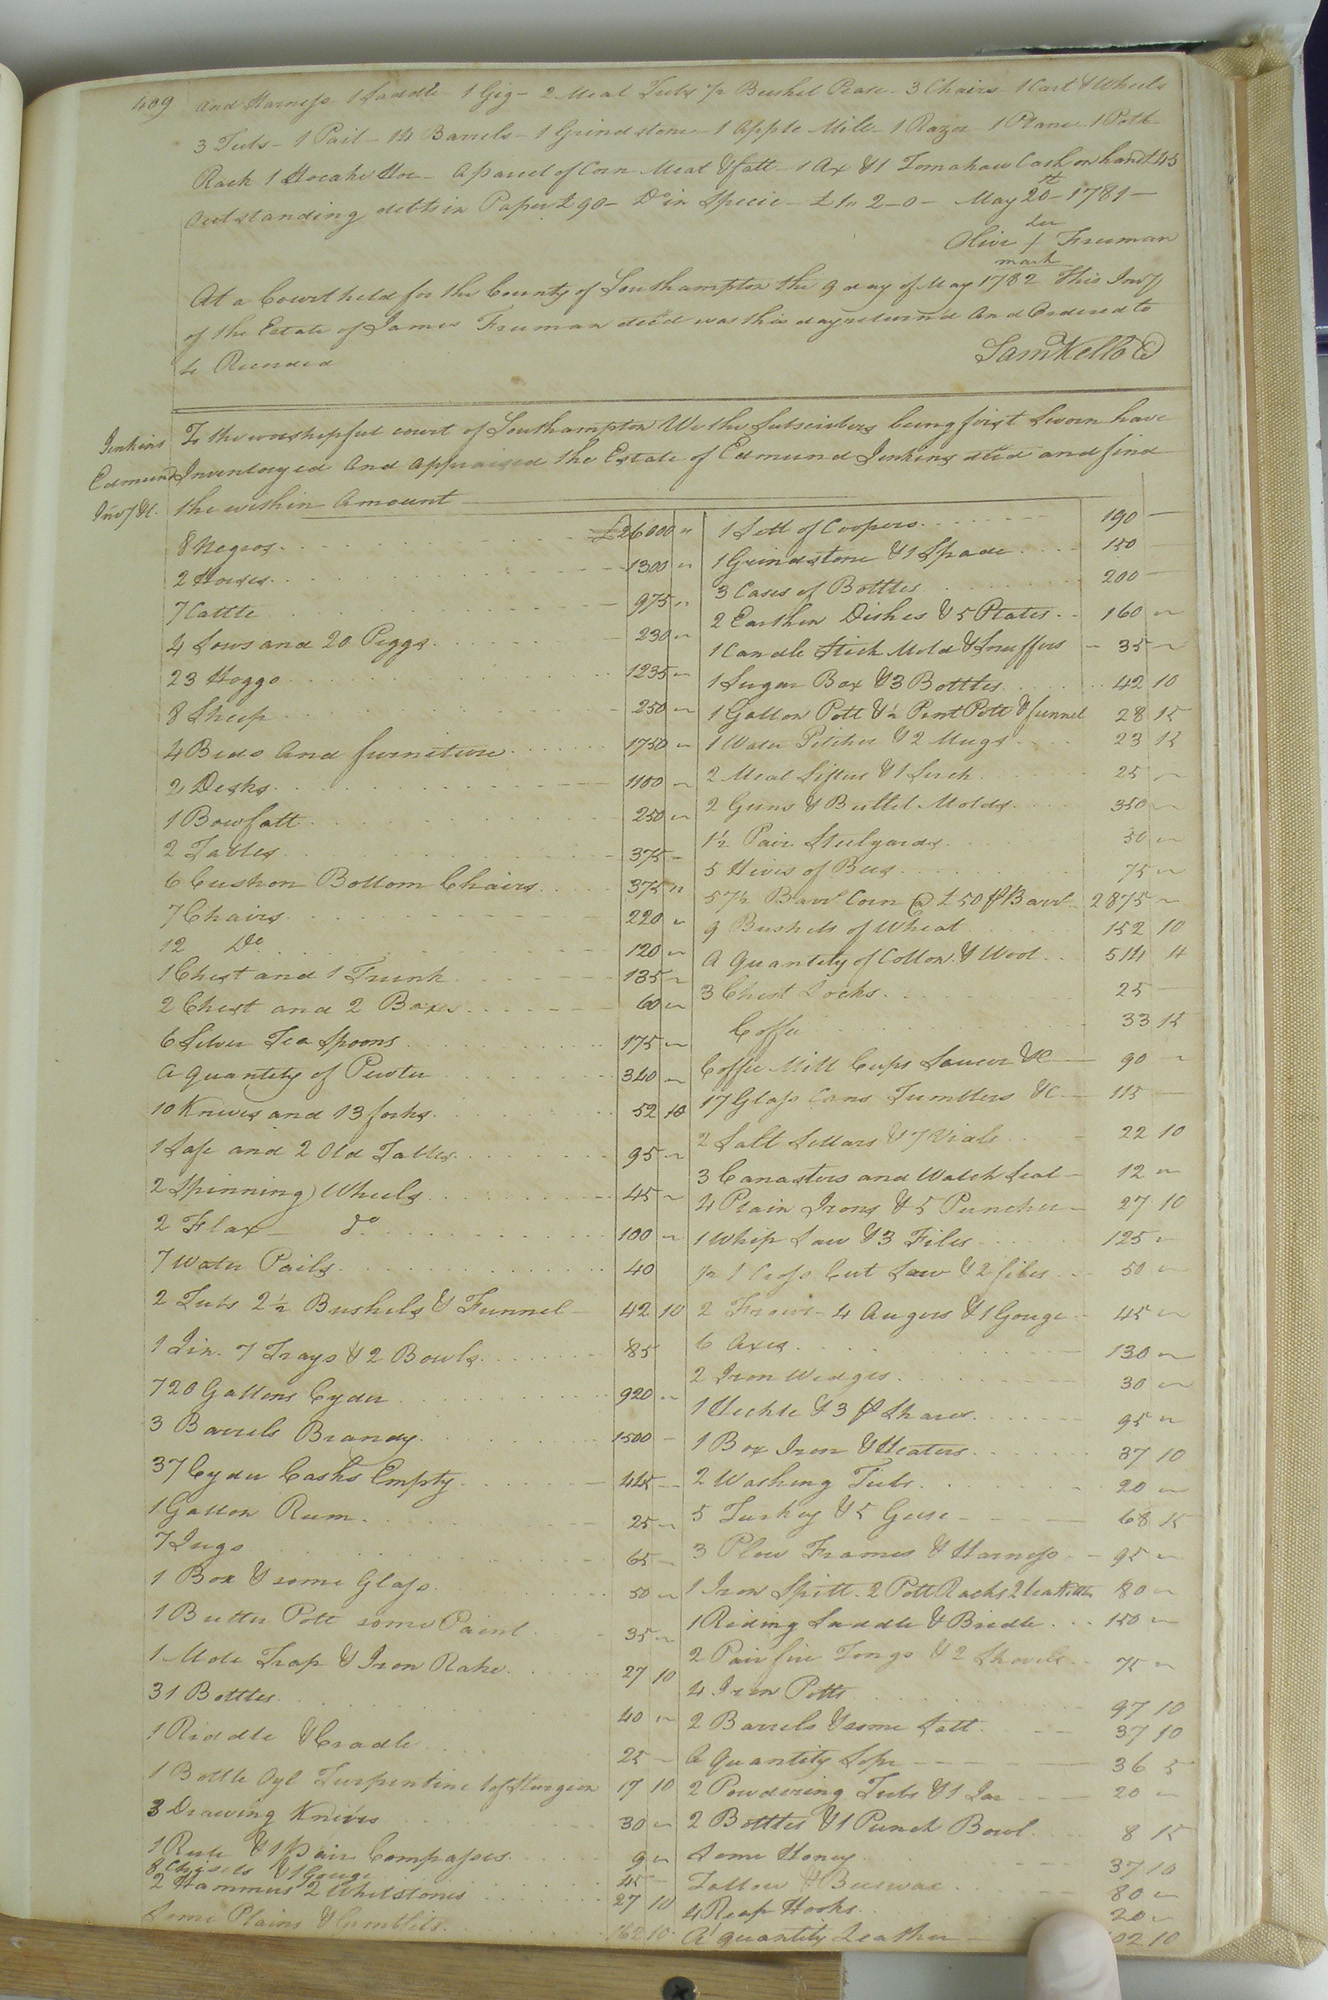 409 and Harness 1 Saddle - 1 Gig - 2 Meal Tubs ½ Bushel Pease - 3 Chairs 1 Cart & Wheels
3 Tubs - 1 Pail - 14 Barrels - 1 Grindstone - 1 Apple Mill - 1 Razor 1 Plane 1 Pott
Rack 1 Hoe - A parcel of Corn Meal & fatt - 1 Ax & 1 Tomahaw Cash on hand £45
Outstanding debts in Paper £90 - Do in Specie - £ 2 - 0 - May 20th 1781 -
her
Olive / Freeman
mark
At a Court held for the County of Southampton the 9 day of May 1782 This Invy
of the Estate of James Freeman decd was this day return'd And Ordered to
be Recorded
Sam Kello C
Jenkins
Edmund
Invy &c.
To the worshipful court of Southampton We the Subscribers being first Sworn have
Inventoryed And appraised the Estate of Edmund Jenkins decd and find
the within Amount
8 Negros £26000 "
2 Horses 1300 "
7 Cattle 975 "
4 Sows and 20 Piggs 230 "
23 Hoggs 1235 "
8 Sheep 250 "
4 Beds And furniture 1750 "
2 Desks 1100 "
1 Bowfatt 250 "
2 Tables 375 -
6 Cushon Bottom Chairs 375 "
7 Chairs 220 "
12 Do 120 "
1 Chest and 1 Trunk 135 "
2 Chest and 2 Boxes 60 "
6 Silver Tea Spoons 175 "
A quantity of Pewter 340 "
10 Knives and 13 forks 52 10
1 Safe and 2 Old Tables 95 "
2 Spinning Wheels 45 "
2 Flax do 100 "
7 Water Pails 40
2 Tubs 2½ Bushels & Funnel 42 10
1 Tin 7 Trays & 2 Bowls 85
720 Gallons Cyder 920 "
3 Barrels Brandy 1500 -
37 Cyder Casks Empty 445 -
1 Gallon Rum 25 "
7 Jugs 65 -
1 Box & some Glass 50 "
1 Butter Pott some Paint 35 "
1 Mole Trap & Iron Rake 27 10
31 Bottles 40 "
1 Riddle & Cradle 25 -
1 Bottle Oyl Turpentine 1 of Sturgeon 17 10
3 Drawing Knives 30 "
1 Rule & 1 Pair Compasses 9 "
8 Chisels & 1 Gouge 45 -
2 Hammers 2 Whetstones 27 10
Some Plains & Gumblets 162 10
1 Sett of Coopers 190 -
1 Grindstone & 1 Spade 150 -
3 Cases of Bottles 200 -
2 Earthen Dishes & 5 Plates 160 "
1 Candle Stick Mold & Snuffers 35 "
1 Sugar Box & 3 Bottles 42 10
1 Gallon Pott & ½ Pint Pott & funnel 28 15
1 Water Pitcher & 2 Mugs 23 15
2 Meal Sifters & 1 Serch 25 "
2 Guns & Bullet Molds 350 "
1½ Pair Steelyards 50 "
5 Hives of Bees 75 "
57½ Barrl Corn @ £50 ⅌ Barrl 2875 "
9 Bushels of Wheat 152 10
A Quantity of Cotton & Wool 514 4
3 Chest Locks 25 -
Coffee 33 15
Coffee Mill Cups Saucer &c 90 "
17 Glass Cans Tumblers &c 115 -
2 Salt Sellars & 7 Vials 22 10
3 Canasters and Watch Seal 12 "
4 Plain Irons & 5 Punches 27 10
1 Whip Saw & 3 Files 125 "
1 Cross Cut Saw & 2 files 50 "
2 Frows - 4 Augers & 1 Gouge 45 "
6 Axes 130 "
2 Iron Wedges 30 "
1 Heckle & 3 pr Shares 95 "
1 Box Iron & Heaters 37 10
2 Washing Tubs 20 "
5 Turkey & 5 Geese 68 15
3 Plow Frames & Harness 95 "
1 Iron Spitt 2 Pott Racks 2 tea Kettles 80 "
1 Riding Saddle & Bridle 150 "
2 Pair fire Tongs & 2 Shovels 75 "
4 Iron Potts 97 10
2 Barrels & some Salt 37 10
A Quantity Sope 36 5
2 Powdering Tubs & 1 Jar 20 "
2 Bottles & 1 Punch Bowl 8 15
Some Honey 37 10
Tallow & Beeswax 80 "
4 Reap Hooks 20 "
A quantity Leather 10